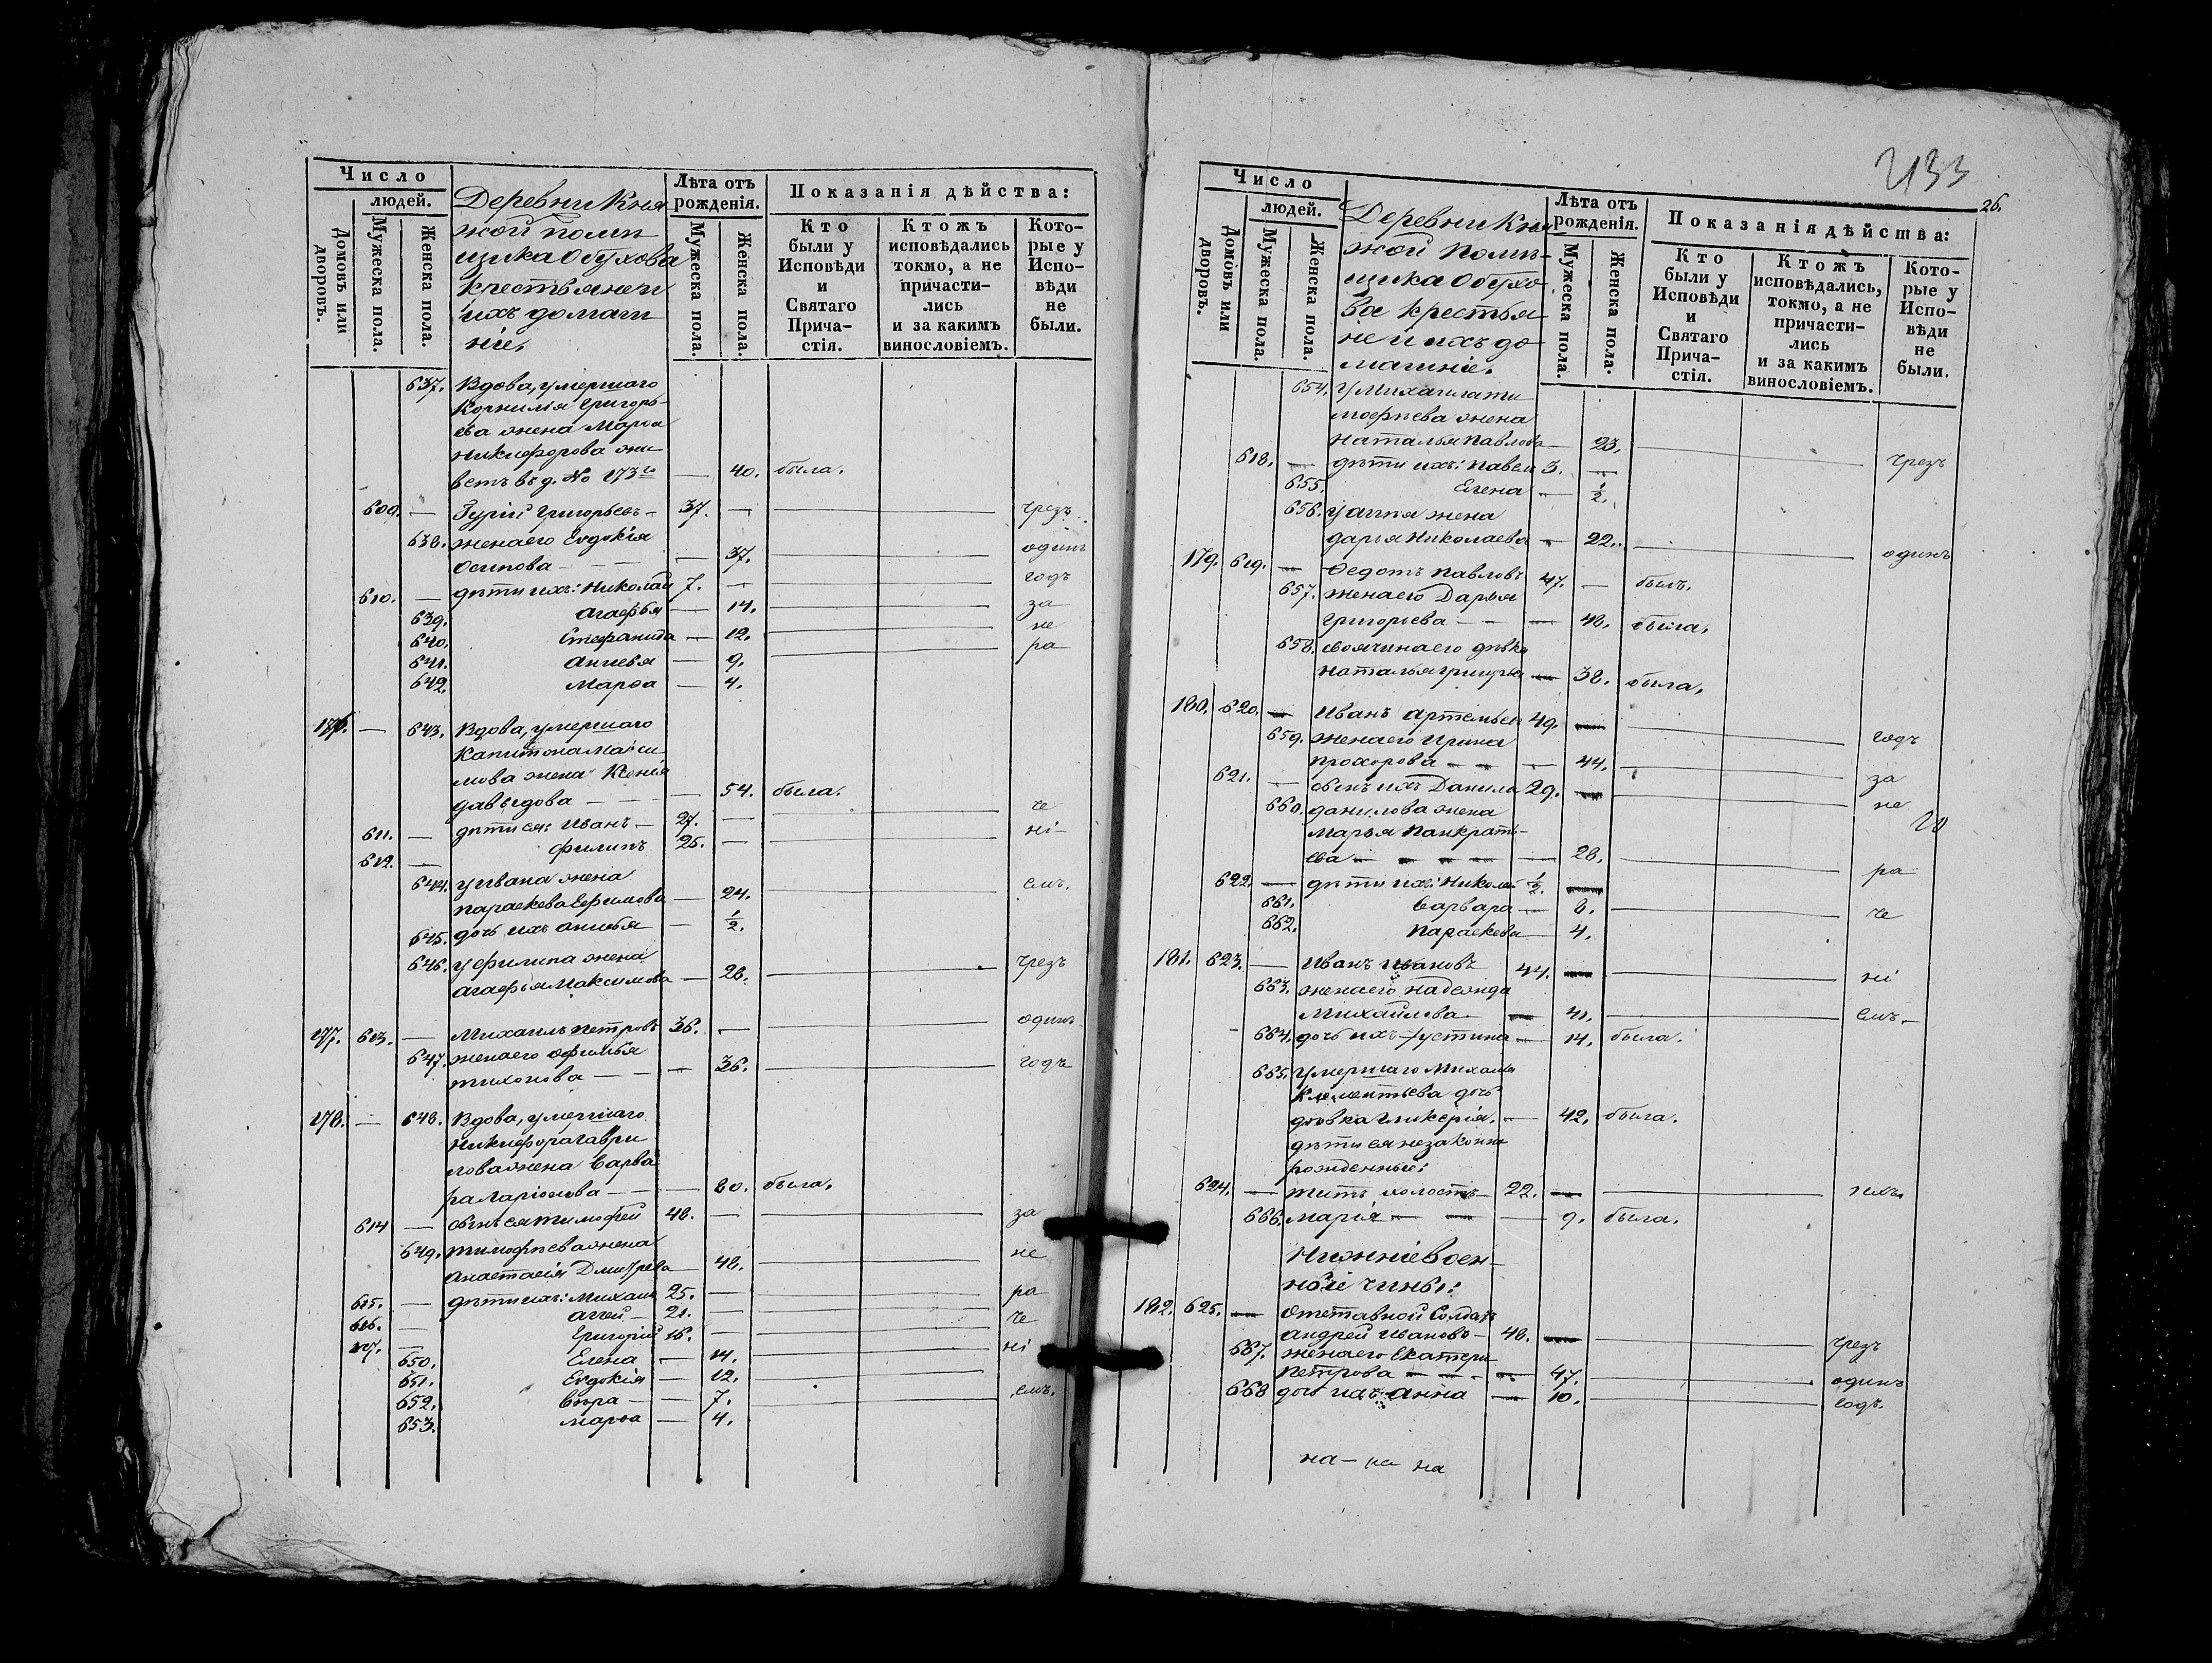 Число
людей.
Домовъ или дворовъ.
Мужеска пола.
Женска пола.
Деревни Кня
жой помѣ
щика Обухова
крестьяне и
ихъ домаш
ніе.
Лѣта отъ рожденія.
Мужеска пола.
Женска пола.
Показанія дѣйства:
Кто были у Исповѣди и Святаго Прича- стія.
Ктожъ исповѣдались токмо, а не причасти- лись и за какимъ винословіемъ.
Кото- рые у Испо- вѣди не были.
637. Вдова, умершаго
Корнилія Григорь-
ева жена Марѳа
Никифорова жи
ветъ въ д. № 173го — 40. была.
609. — Гурій Григорьевъ — 37. — чрезъ
638. жена его Евдокія
Осипова — 37. одинъ
610. — дѣти ихъ: Николай 7. — годъ
639. Агафья — 14. за
640. Стефанида — 12. не
641. Анисья — 9. ра
642. Марѳа — 4.
176. — 643. Вдова, умершаго
Капитона Макси
мова жена Ксенія
Давыдова — 54. была.
611. — дѣти ея: Иванъ — 27. — че
612. — Филипъ 25. — ні-
644. у Ивана жена
Параскева Ефимова — 24. емъ.
645. дочь ихъ Анисья — 1/2.
646. у Филипа жена
Агафья Максимова — 26. чрезъ
177. 613. — Михаилъ Петровъ 36. — одинъ
647. жена его Офимья
Тихонова — 36. годъ
178. — 648. Вдова, умершаго
Никифора Гаври
лова жена Варва
ра Ларіонова — 80. была.
614 — сынъ ея Тимофей 48. — за
649. Тимофѣева жена
Анастасія Дмитрева — 48. не
615. — дѣти ихъ: Михаил 25. — ра
616. — Аггей — 21. — че
617. — Григорій 16. — ні
650. Елена — 14.
651. Евдокія — 12.
652. Вѣра — 7. емъ.
653. Марѳа — 4.
433
26.
Число
людей.
Домовъ или дворовъ.
Мужеска пола.
Женска пола.
Деревни Кня
жой помѣ-
щика Обухо
ва крестья
не и ихъ до
машніе.
Лѣта отъ рожденія.
Мужеска пола.
Женска пола.
Показанія дѣйства:
Кто были у Исповѣди и Святаго Прича- стія.
Ктожъ исповѣдались, токмо, а не причасти- лись и за какимъ винословіемъ.
Кото- рые у Испо- вѣди не были.
654. у Михаила Ти
мофѣева жена
Наталья Павлова — 23. чрезъ
618. — дѣти ихъ: Павел 3. —
655. Елена — 1/2.
656. у Аггея жена
Дарья Николаева — 22. одинъ
179. 619. — Ѳедотъ Павловъ 47. — былъ.
657. жена его Дарья
Григорьева — 48. была.
658. своячина его дѣвка
Наталья Григорьева — 38. была.
180. 620. — Иванъ Артемьев 49. — годъ
659. жена его Ирина
Прохорова — 44. за
621. — сынъ ихъ Данила 29. — не
660. Данилова жена
Марья Панкрать-
ева — 28. ра
622. — дѣти ихъ: Николай 1/2. —
661. Варвара — 8. че
662. Параскева — 4.
181. 623. — Иванъ Ивановъ 44. — ні
663. жена его Надежда
Михайлова — 41. емъ.
664. дочь ихъ Устина — 14. была.
665. умершаго Михаила
Клементьева дочь
дѣвка Гликерія. — 42. была.
дѣти ея незаконно
рожденные:
624. — Титъ холостъ — 22. —
666. Марія — 9. была.
Нижніе воен-
ные чины:
182. 625. — Отставной Солдатъ
Андрей Ивановъ — 48. — чрезъ
667. жена его Екатери
Петрова — 47. одинъ
668 дочь ихъ Анна — 10. годъ.
на — на на